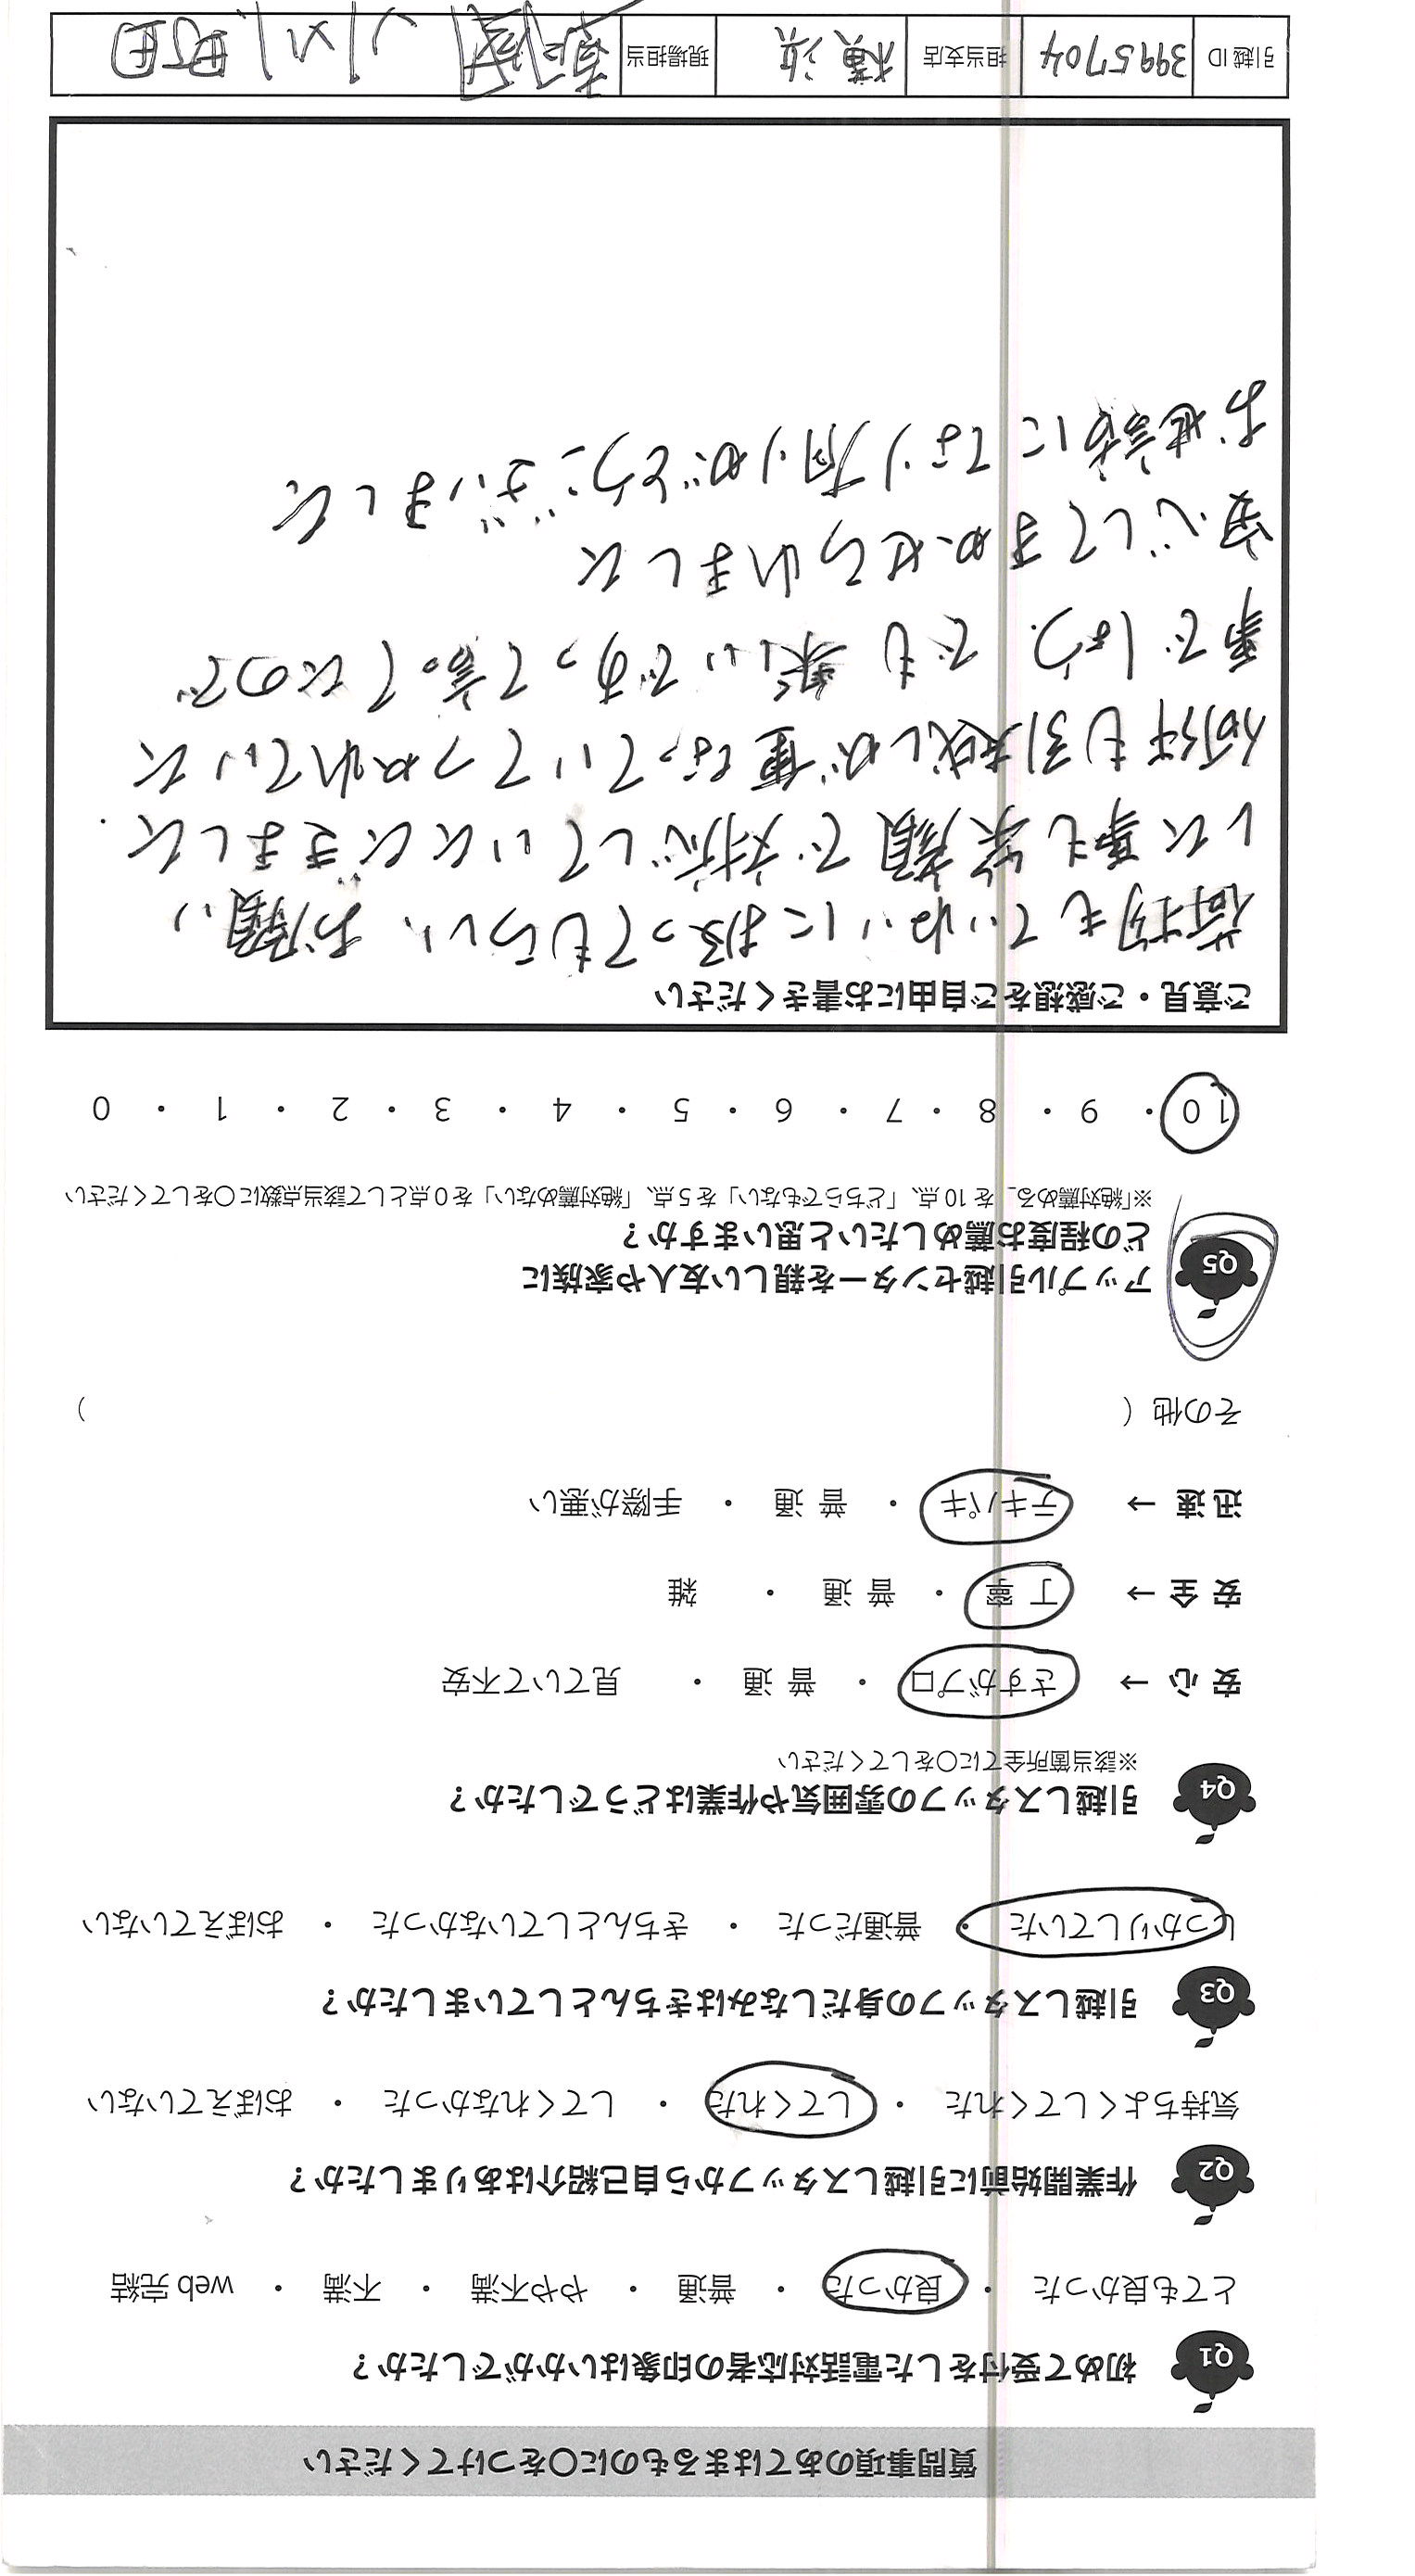 質問事項のあてはまるものに〇をつけてください
Q1 初めて受付をした電話対応者の印象はいかがでしたか？
とても良かった ・ 良かった ・ 普通 ・ やや不満 ・ 不満 ・ web 完結
Q2 作業開始前に引越しスタッフから自己紹介はありましたか？
気持ちよくしてくれた ・ してくれた ・ してくれなかった ・ おぼえていない
Q3 引越しスタッフの身だしなみはきちんとしていましたか？
しっかりしていた ・ 普通だった ・ きちんとしていなかった ・ おぼえていない
Q4 引越しスタッフの雰囲気や作業はどうでしたか？
※該当箇所全てに〇をしてください
安 心 → さすがプロ ・ 普 通 ・ 見ていて不安
安 全 → 丁 寧 ・ 普 通 ・ 雑
迅 速 → テキパキ ・ 普 通 ・ 手際が悪い
その他（ ）
Q5 アップル引越センターを親しい友人や家族に
どの程度お薦めしたいと思いますか？
※「絶対薦める」を 10 点、「どちらでもない」を 5 点、「絶対薦めない」を 0 点として該当点数に〇をしてください
10 ・ 9 ・ 8 ・ 7 ・ 6 ・ 5 ・ 4 ・ 3 ・ 2 ・ 1 ・ 0
ご意見・ご感想をご自由にお書きください
荷物もていねいに扱ってもらい、お願い
した事も笑顔で対応していただきました.
何件も引越しが重なっていてつかれていた
事でしょう. でも楽しいですって言ってたので
安心してまかせられました
お世話になり有りがとうございました
引越 ID 3995704 担当支店 横浜 現場担当 町田